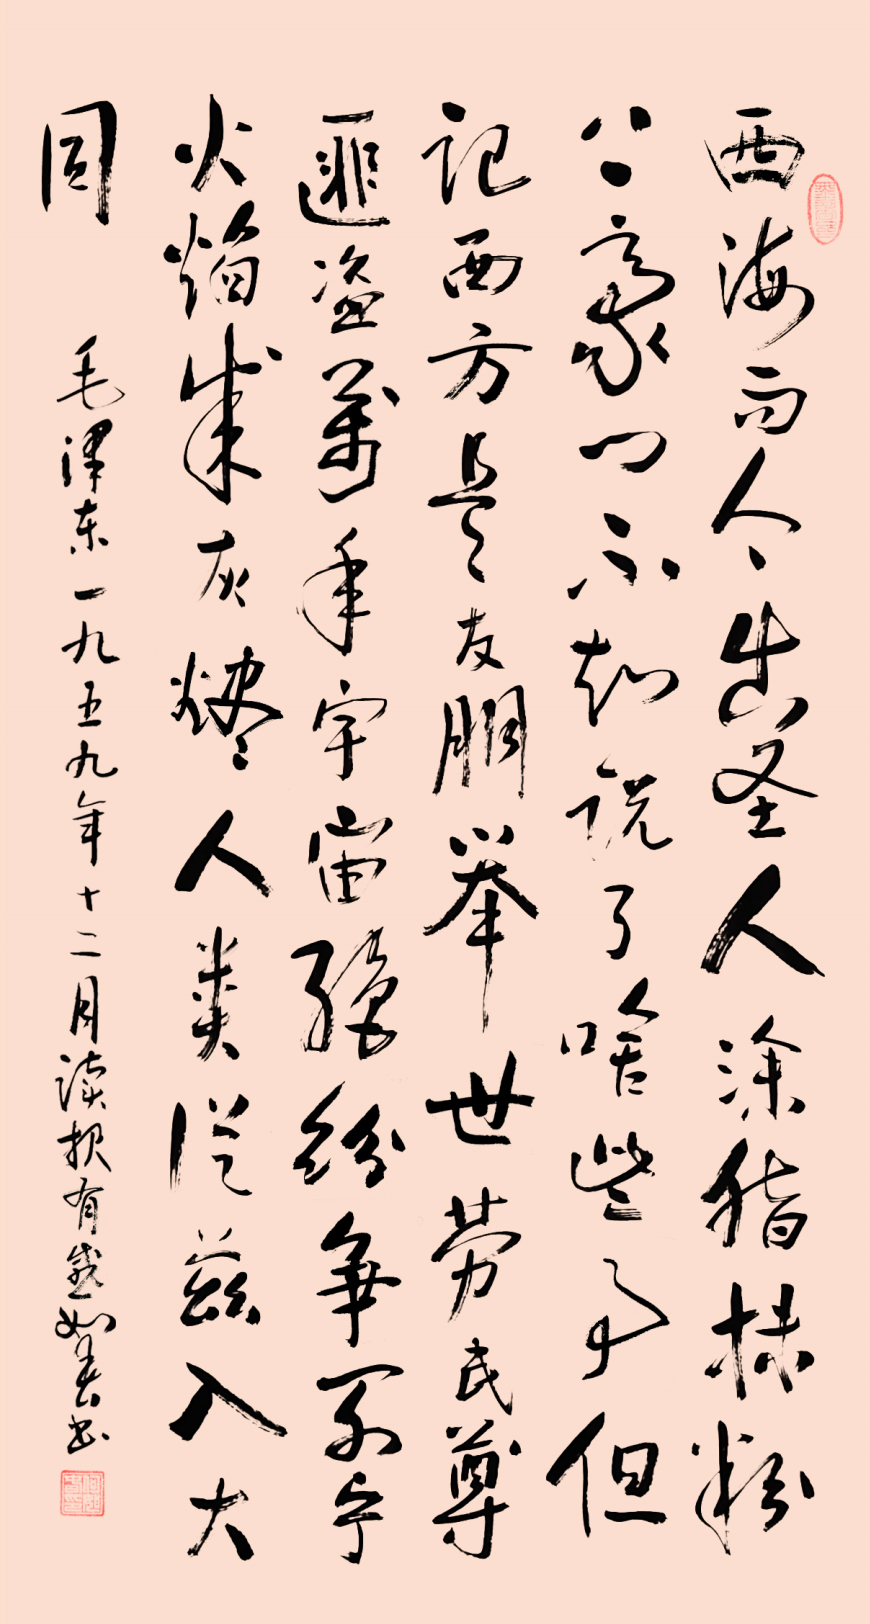 西海而今出圣人涂脂抹粉
豪门不知说了啥些事但
记西方是友朋举世劳民尊
匪盗萬年宇宙绝纷争列宁
火焰成灰烬人类从兹入大
同
毛泽东一九五九年十二月读报有感如春书